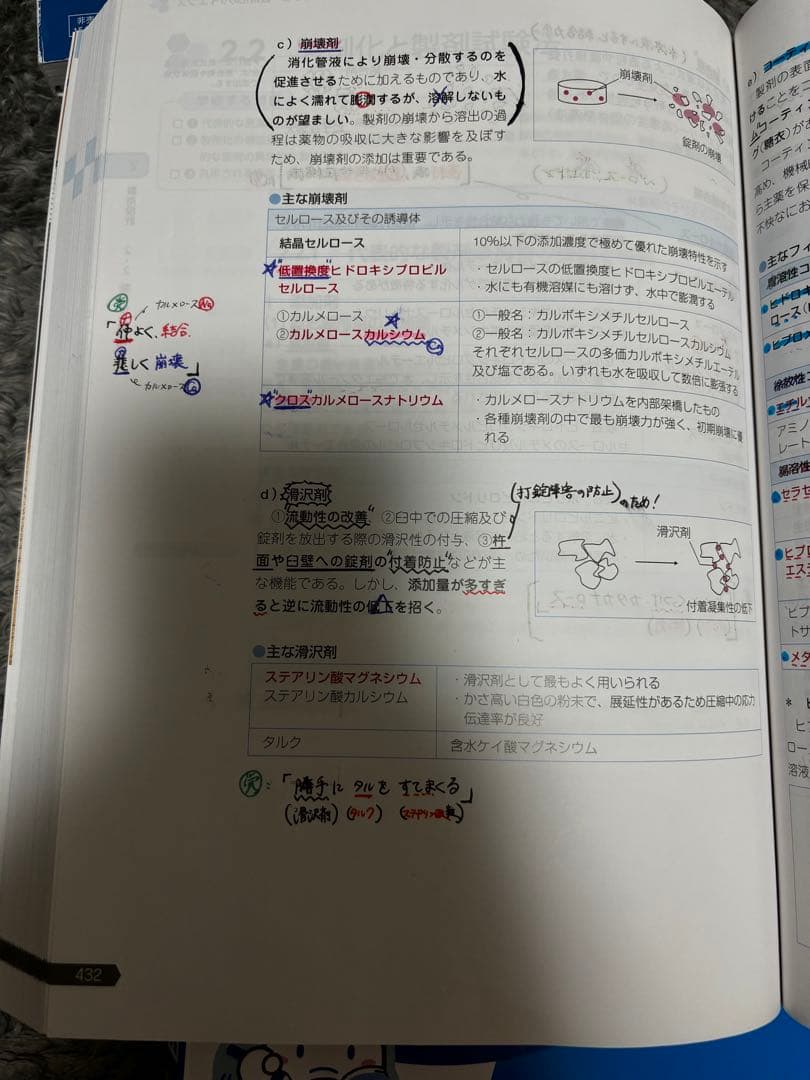 c）崩壊剤
消化管液により崩壊・分散するのを
促進させるために加えるものであり、水
によく濡れて膨潤するが、溶解しないも
のが望ましい。製剤の崩壊から溶出の過
程は薬物の吸収に大きな影響を及ぼす
ため、崩壊剤の添加は重要である。
崩壊剤
錠剤の崩壊
●主な崩壊剤
セルロース及びその誘導体
結晶セルロース
10％以下の添加濃度で極めて優れた崩壊特性を示す
低置換度ヒドロキシプロピル
セルロース
・セルロースの低置換度ヒドロキシプロピルエーテル
・水にも有機溶媒にも溶けず、水中で膨潤する
①カルメロース
②カルメロースカルシウム
Ca
①一般名：カルボキシメチルセルロース
②一般名：カルボキシメチルセルロースカルシウム
それぞれセルロースの多価カルボキシメチルエーテル
及び塩である。いずれも水を吸収して数倍に膨張する
クロスカルメロースナトリウム
・カルメロースナトリウムを内部架橋したもの
・各種崩壊剤の中で最も崩壊力が強く、初期崩壊に優
れる
カルメロースNa
「仲よく、結合
悲しく崩壊」
カルメロースCa
d）滑沢剤
(打錠障害の防止)のため！
①流動性の改善、②臼中での圧縮及び
錠剤を放出する際の滑沢性の付与、③杵
面や臼壁への錠剤の付着防止などが主
な機能である。しかし、添加量が多すぎ
ると逆に流動性の低下を招く。
滑沢剤
付着凝集性の低下
●主な滑沢剤
ステアリン酸マグネシウム
ステアリン酸カルシウム
・滑沢剤として最もよく用いられる
・かさ高い白色の粉末で、展延性があるため圧縮中の応力
伝達率が良好
タルク
含水ケイ酸マグネシウム
「勝手にタルをすてまくる」
(滑沢剤) (タルク)
432
e）コーティ
製剤の表面
けることをコ
ムコーティ
グ(糖衣)がお
コーティン
高め、機械
ら主薬を保
不快なにお
●主なフィ
胃溶性コ
ヒドロキ
ロース(
ヒプロメ
徐放性コ
エチル
アミノ
レート
腸溶性
セラセ
ヒプロ
エステ
ヒプ
トサ
メタ
＊ ヒ
ヒプ
ロー
溶液